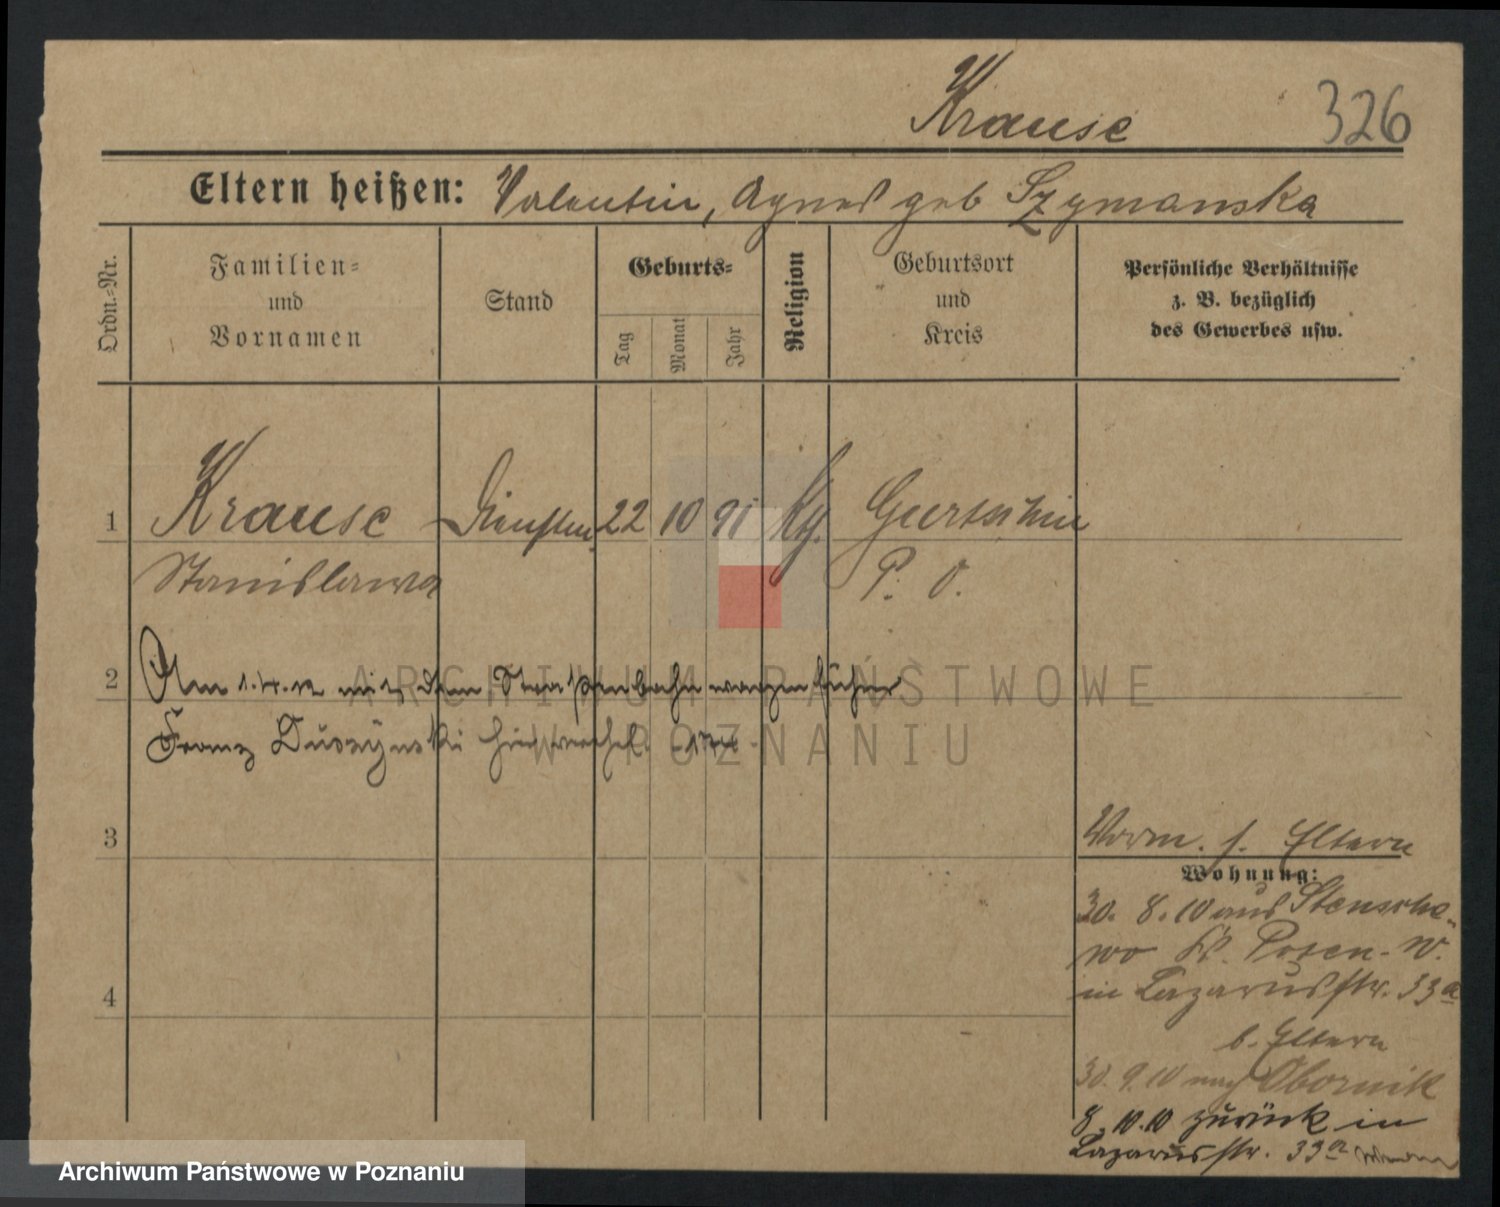 Krause 326
Eltern heißen: Valentin, Agnes geb Szymanska
Ordn.-Nr.
Familien-
und
Vornamen
Stand
Geburts-
Tag
Monat
Jahr
Religion
Geburtsort
und
Kreis
Persönliche Verhältnisse
z. B. bezüglich
des Gewerbes usw.
1 Krause 22 10 91
Stanislawa P. O.
2 Am 1.4.12 mit dem Straßenbahnwagenführer
Franz
3
Vorm. s. Eltern
Wohnung:
30. 8. 10 aus Stensche-
wo Kr. Posen-W.
in Lazarusstr. 33a
4
b. Eltern
30. 9. 10 nach Obornik
8. 10. 10 zurück in
Lazarusstr. 33a
ARCHIWUM PAŃSTWOWE
W POZNANIU
Archiwum Państwowe w Poznaniu